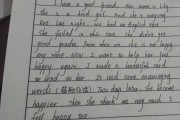 I have a good friend. Her name is Lily
She is a kind girl. And she is
But last night, we had an English
She failed in this one. She didn't get
good grades. From then on, she is not happy
any more. I want to help her feel
happy again. I made a beautiful card
to send to her. I wrote some encouraging
words (鼓励的话). Two days later, she became
happier. Then she thank me very much. I
feel happy too